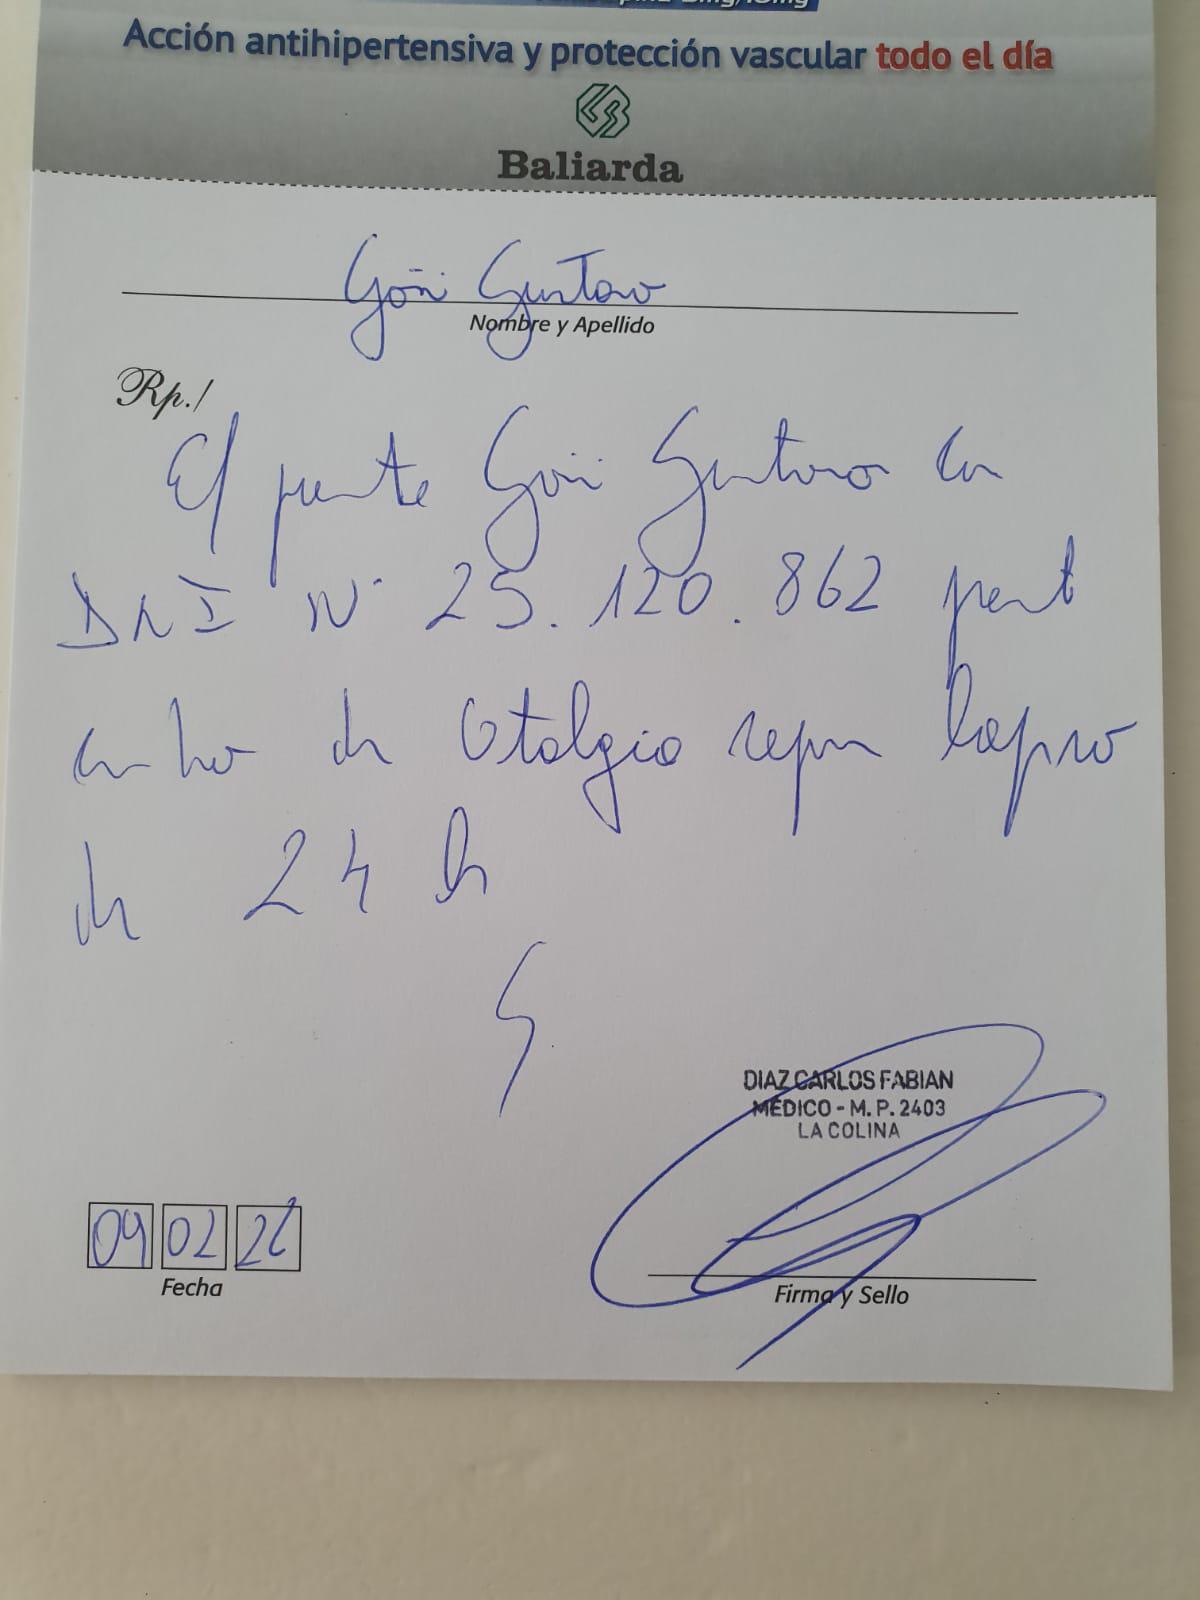 Acción antihipertensiva y protección vascular todo el día
Baliarda
Goñi Gustavo
Nombre y Apellido
Rp./
El Goñi Gustavo con
DNI N° 25.120.862
de Otalgia
de 24 h
DIAZ CARLOS FABIAN
MÉDICO - M. P. 2403
LA COLINA
09 02 26
Fecha
Firma y Sello